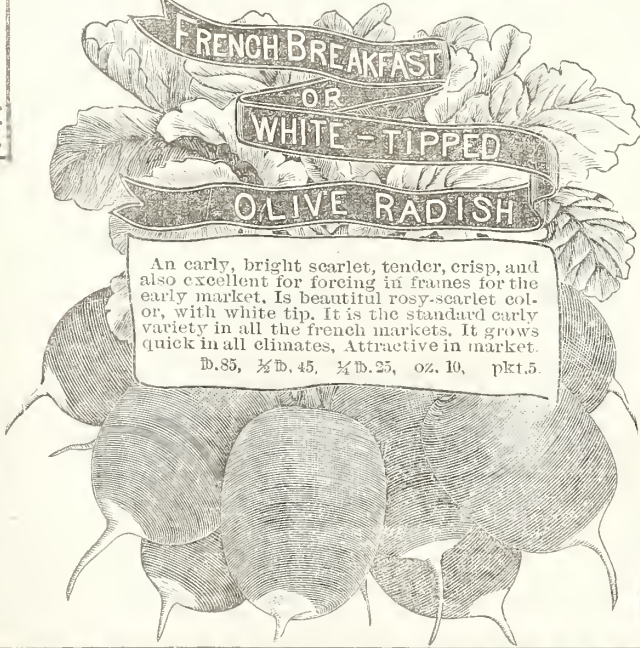 FRENCH BREAKFAST
OR
WHITE-TIPPED
OLIVE RADISH
An early, bright scarlet, tender, crisp, and
also excellent for forcing in frames for the
early market. Is beautiful rosy-scarlet col-
or, with white tip. It is the standard early
variety in all the french markets. It grows
quick in all climates, Attractive in market.
℔.85, ½℔, 45, ¼℔.25, oz. 10, pkt.5.